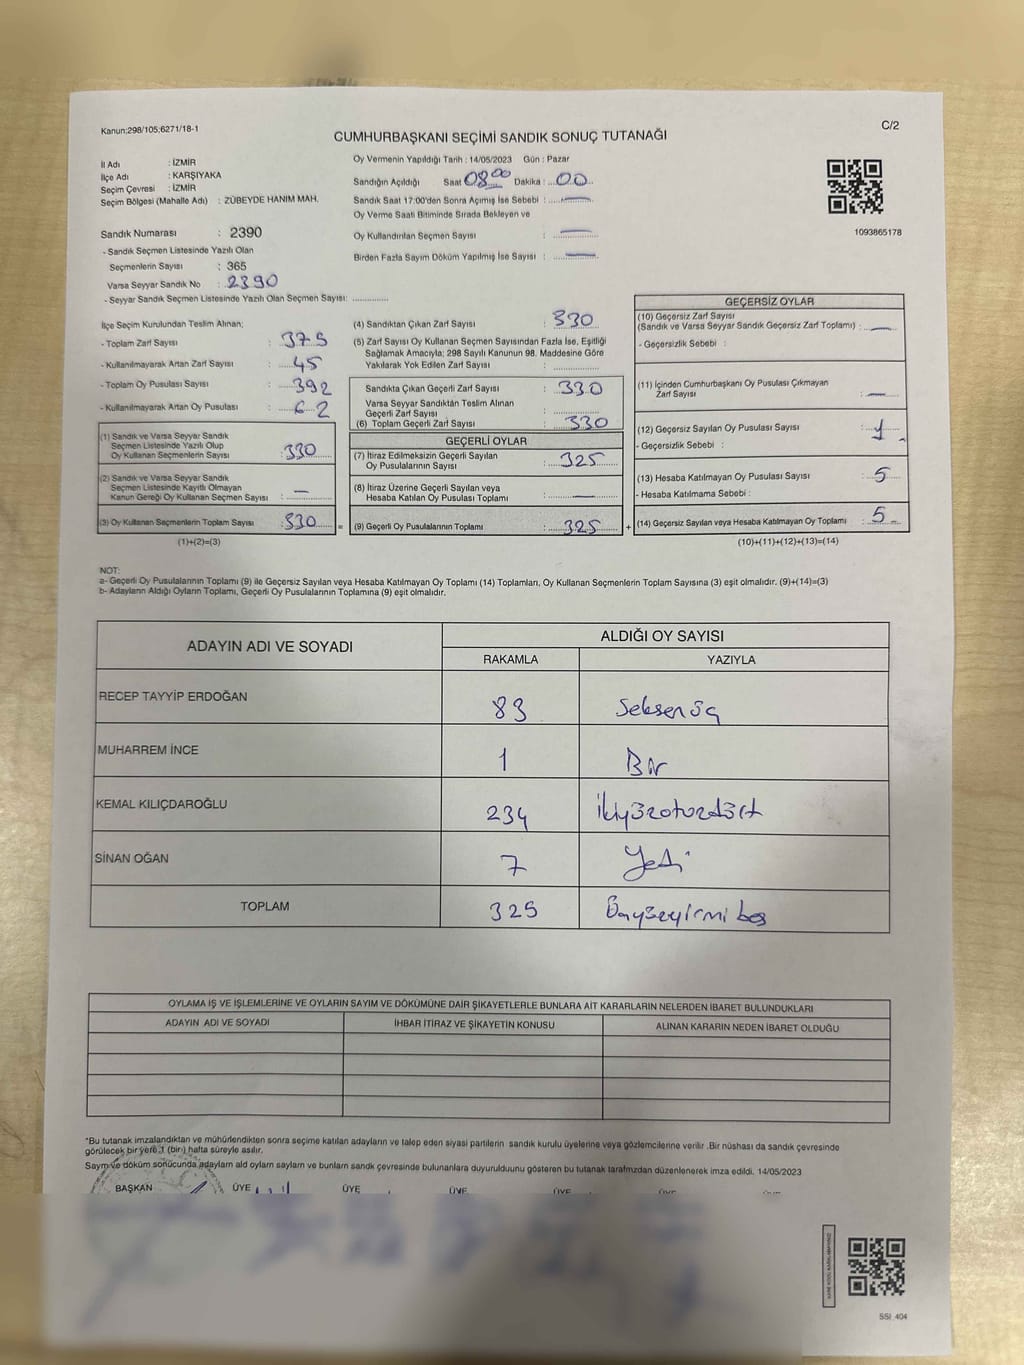 Kanun:298/105;6271/18-1
C/2
CUMHURBAŞKANI SEÇİMİ SANDIK SONUÇ TUTANAĞI
İl Adı : İZMİR
İlçe Adı : KARŞIYAKA
Seçim Çevresi : İZMİR
Seçim Bölgesi (Mahalle Adı) : ZÜBEYDE HANIM MAH.
Oy Vermenin Yapıldığı Tarih : 14/05/2023 Gün : Pazar
Sandığın Açıldığı Saat 08.00 Dakika : 00
Sandık Saat 17:00'den Sonra Açımış İse Sebebi : —
Oy Verme Saati Bitiminde Sırada Bekleyen ve
Oy Kullandırılan Seçmen Sayısı : —
Birden Fazla Sayım Döküm Yapılmış İse Sayısı : —
1093865178
Sandık Numarası : 2390
- Sandık Seçmen Listesinde Yazılı Olan
Seçmenlerin Sayısı : 365
Varsa Seyyar Sandık No : 2390
- Seyyar Sandık Seçmen Listesinde Yazılı Olan Seçmen Sayısı: ............
İlçe Seçim Kurulundan Teslim Alınan;
- Toplam Zarf Sayısı : 375
- Kullanılmayarak Artan Zarf Sayısı : 45
- Toplam Oy Pusulası Sayısı : 392
- Kullanılmayarak Artan Oy Pusulası : 62
(1) Sandık ve Varsa Seyyar Sandık
Seçmen Listesinde Yazılı Olup
Oy Kullanan Seçmenlerin Sayısı : 330
(2) Sandık ve Varsa Seyyar Sandık
Seçmen Listesinde Kayıtlı Olmayan
Kanun Gereği Oy Kullanan Seçmen Sayısı : —
(3) Oy Kullanan Seçmenlerin Toplam Sayısı : 330
(1)+(2)=(3)
=
(4) Sandıktan Çıkan Zarf Sayısı : 330
(5) Zarf Sayısı Oy Kullanan Seçmen Sayısından Fazla İse, Eşitliği
Sağlamak Amacıyla; 298 Sayılı Kanunun 98. Maddesine Göre
Yakılarak Yok Edilen Zarf Sayısı : ............
Sandıkta Çıkan Geçerli Zarf Sayısı : 330
Varsa Seyyar Sandıktan Teslim Alınan
Geçerli Zarf Sayısı : ............
(6) Toplam Geçerli Zarf Sayısı : 330
GEÇERLİ OYLAR
(7) İtiraz Edilmeksizin Geçerli Sayılan
Oy Pusulalarının Sayısı : 325
(8) İtiraz Üzerine Geçerli Sayılan veya
Hesaba Katılan Oy Pusulası Toplamı : —
(9) Geçerli Oy Pusulalarının Toplamı : 325
+
GEÇERSİZ OYLAR
(10) Geçersiz Zarf Sayısı
(Sandık ve Varsa Seyyar Sandık Geçersiz Zarf Toplamı) : —
- Geçersizlik Sebebi :
(11) İçinden Cumhurbaşkanı Oy Pusulası Çıkmayan
Zarf Sayısı : —
(12) Geçersiz Sayılan Oy Pusulası Sayısı :
- Geçersizlik Sebebi :
(13) Hesaba Katılmayan Oy Pusulası Sayısı : 5
- Hesaba Katılmama Sebebi :
(14) Geçersiz Sayılan veya Hesaba Katılmayan Oy Toplamı : 5
(10)+(11)+(12)+(13)=(14)
NOT:
a- Geçerli Oy Pusulalarının Toplamı (9) ile Geçersiz Sayılan veya Hesaba Katılmayan Oy Toplamı (14) Toplamları, Oy Kullanan Seçmenlerin Toplam Sayısına (3) eşit olmalıdır. (9)+(14)=(3)
b- Adayların Aldığı Oyların Toplamı, Geçerli Oy Pusulalarının Toplamına (9) eşit olmalıdır.
ADAYIN ADI VE SOYADI
ALDIĞI OY SAYISI
RAKAMLA YAZIYLA
RECEP TAYYİP ERDOĞAN 83 Seksenüç
MUHARREM İNCE 1 Bir
KEMAL KILIÇDAROĞLU 234 İkiyüzotuzdört
SİNAN OĞAN 7 Yedi
TOPLAM 325 Üçyüzyirmi beş
OYLAMA İŞ VE İŞLEMLERİNE VE OYLARIN SAYIM VE DÖKÜMÜNE DAİR ŞİKAYETLERLE BUNLARA AİT KARARLARIN NELERDEN İBARET BULUNDUKLARI
ADAYIN ADI VE SOYADI İHBAR İTİRAZ VE ŞİKAYETİN KONUSU ALINAN KARARIN NEDEN İBARET OLDUĞU
*Bu tutanak imzalandıktan ve mühürlendikten sonra seçime katılan adayların ve talep eden siyasi partilerin sandık kurulu üyelerine veya gözlemcilerine verilir .Bir nüshası da sandık çevresinde
görülecek bir yere 1 (bir) hafta süreyle asılır.
Sayım ve döküm sonucunda adayların ald oyların sayları ve bunların sandık çevresinde bulunanlara duyurulduunu gösteren bu tutanak tarafmzdan düzenlenerek imza edildi. 14/05/2023
BAŞKAN ÜYE ÜYE ÜYE ÜYE ÜYE ÜYE
SSI_404